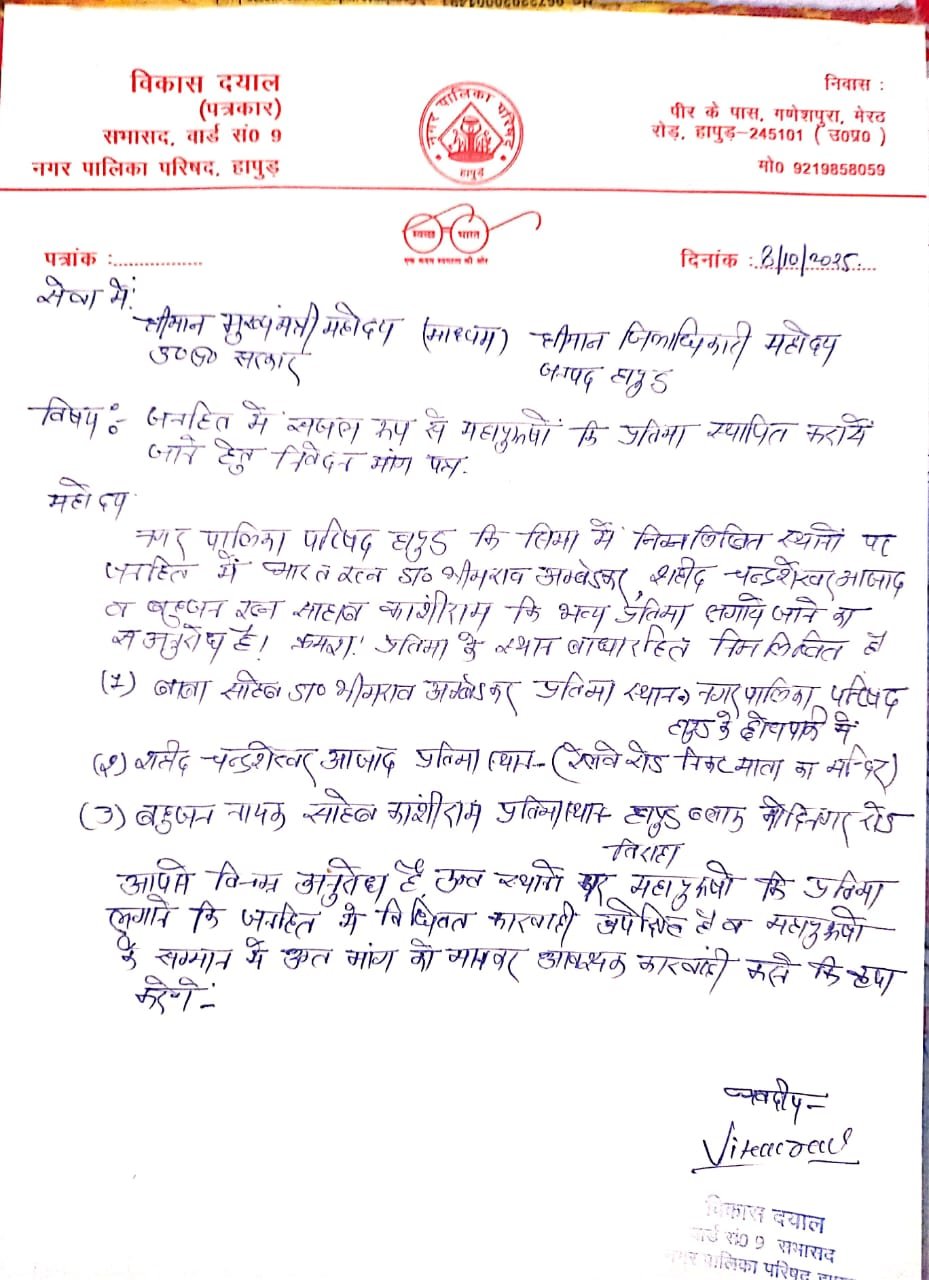 विकास दयाल
(पत्रकार)
सभासद, वार्ड सं0 9
नगर पालिका परिषद, हापुड़
नगर पालिका परिषद
हापुड़
निवास :
पीर के पास, गणेशपुरा, मेरठ
रोड़, हापुड़-245101 ( उ0प्र0 )
मो0 9219858059
स्वच्छ भारत
एक कदम स्वच्छता की ओर
पत्रांक :..............
दिनांक : 8/10/2025
सेवा में:
श्रीमान मुख्यमंत्री महोदय (माध्यम) श्रीमान जिलाधिकारी महोदय
उ०प्र० सरकार
जनपद हापुड
विषय :- जनहित में रूप से महापुरूषों कि प्रतिमा स्थापित कराये
जाने हेतु निवेदन मांग पत्र.
महोदय
नगर पालिका परिषद हापुड कि सिमा में निम्नलिखित स्थानों पर
जनहित में भारत रत्न डा० भीमराव अम्बेडकर, शहीद चन्द्रशेखर आजाद
व बहुजन रत्न साहब काशीराम कि भव्य प्रतिमा लगाये जाने का
स अनुरोध है। क्रमश: प्रतिमा के स्थान बाधारहित निम लिखित है
(1) बाबा साहेब डा० भीमराव अम्बेडकर प्रतिमा स्थान नगर पालिका परिषद
हापुड के में
(२) शहीद चन्द्रशेखर आजाद प्रतिमा स्थान- (रेलवे रोड निकट माता का मन्दिर)
(3) बहुजन नायक साहेब कांशीराम प्रतिमा स्थान- हापुड ब्लाक मोदीनगर रोड
तिराहा
आपसे विनम्र अनुरोध है, उक्त स्थानों पर महापुरूषो कि प्रतिमा
लगाने कि जनहित में विधिवत कारवाही अपेक्षित है व महापुरूषो
के सम्मान में उक्त मांग को मानकर आवश्यक कारवाही करने कि कृपा
करेंगे:-
भवदीय-
विकास दयाल
वार्ड सं0 9 सभासद
नगर पालिका परिषद